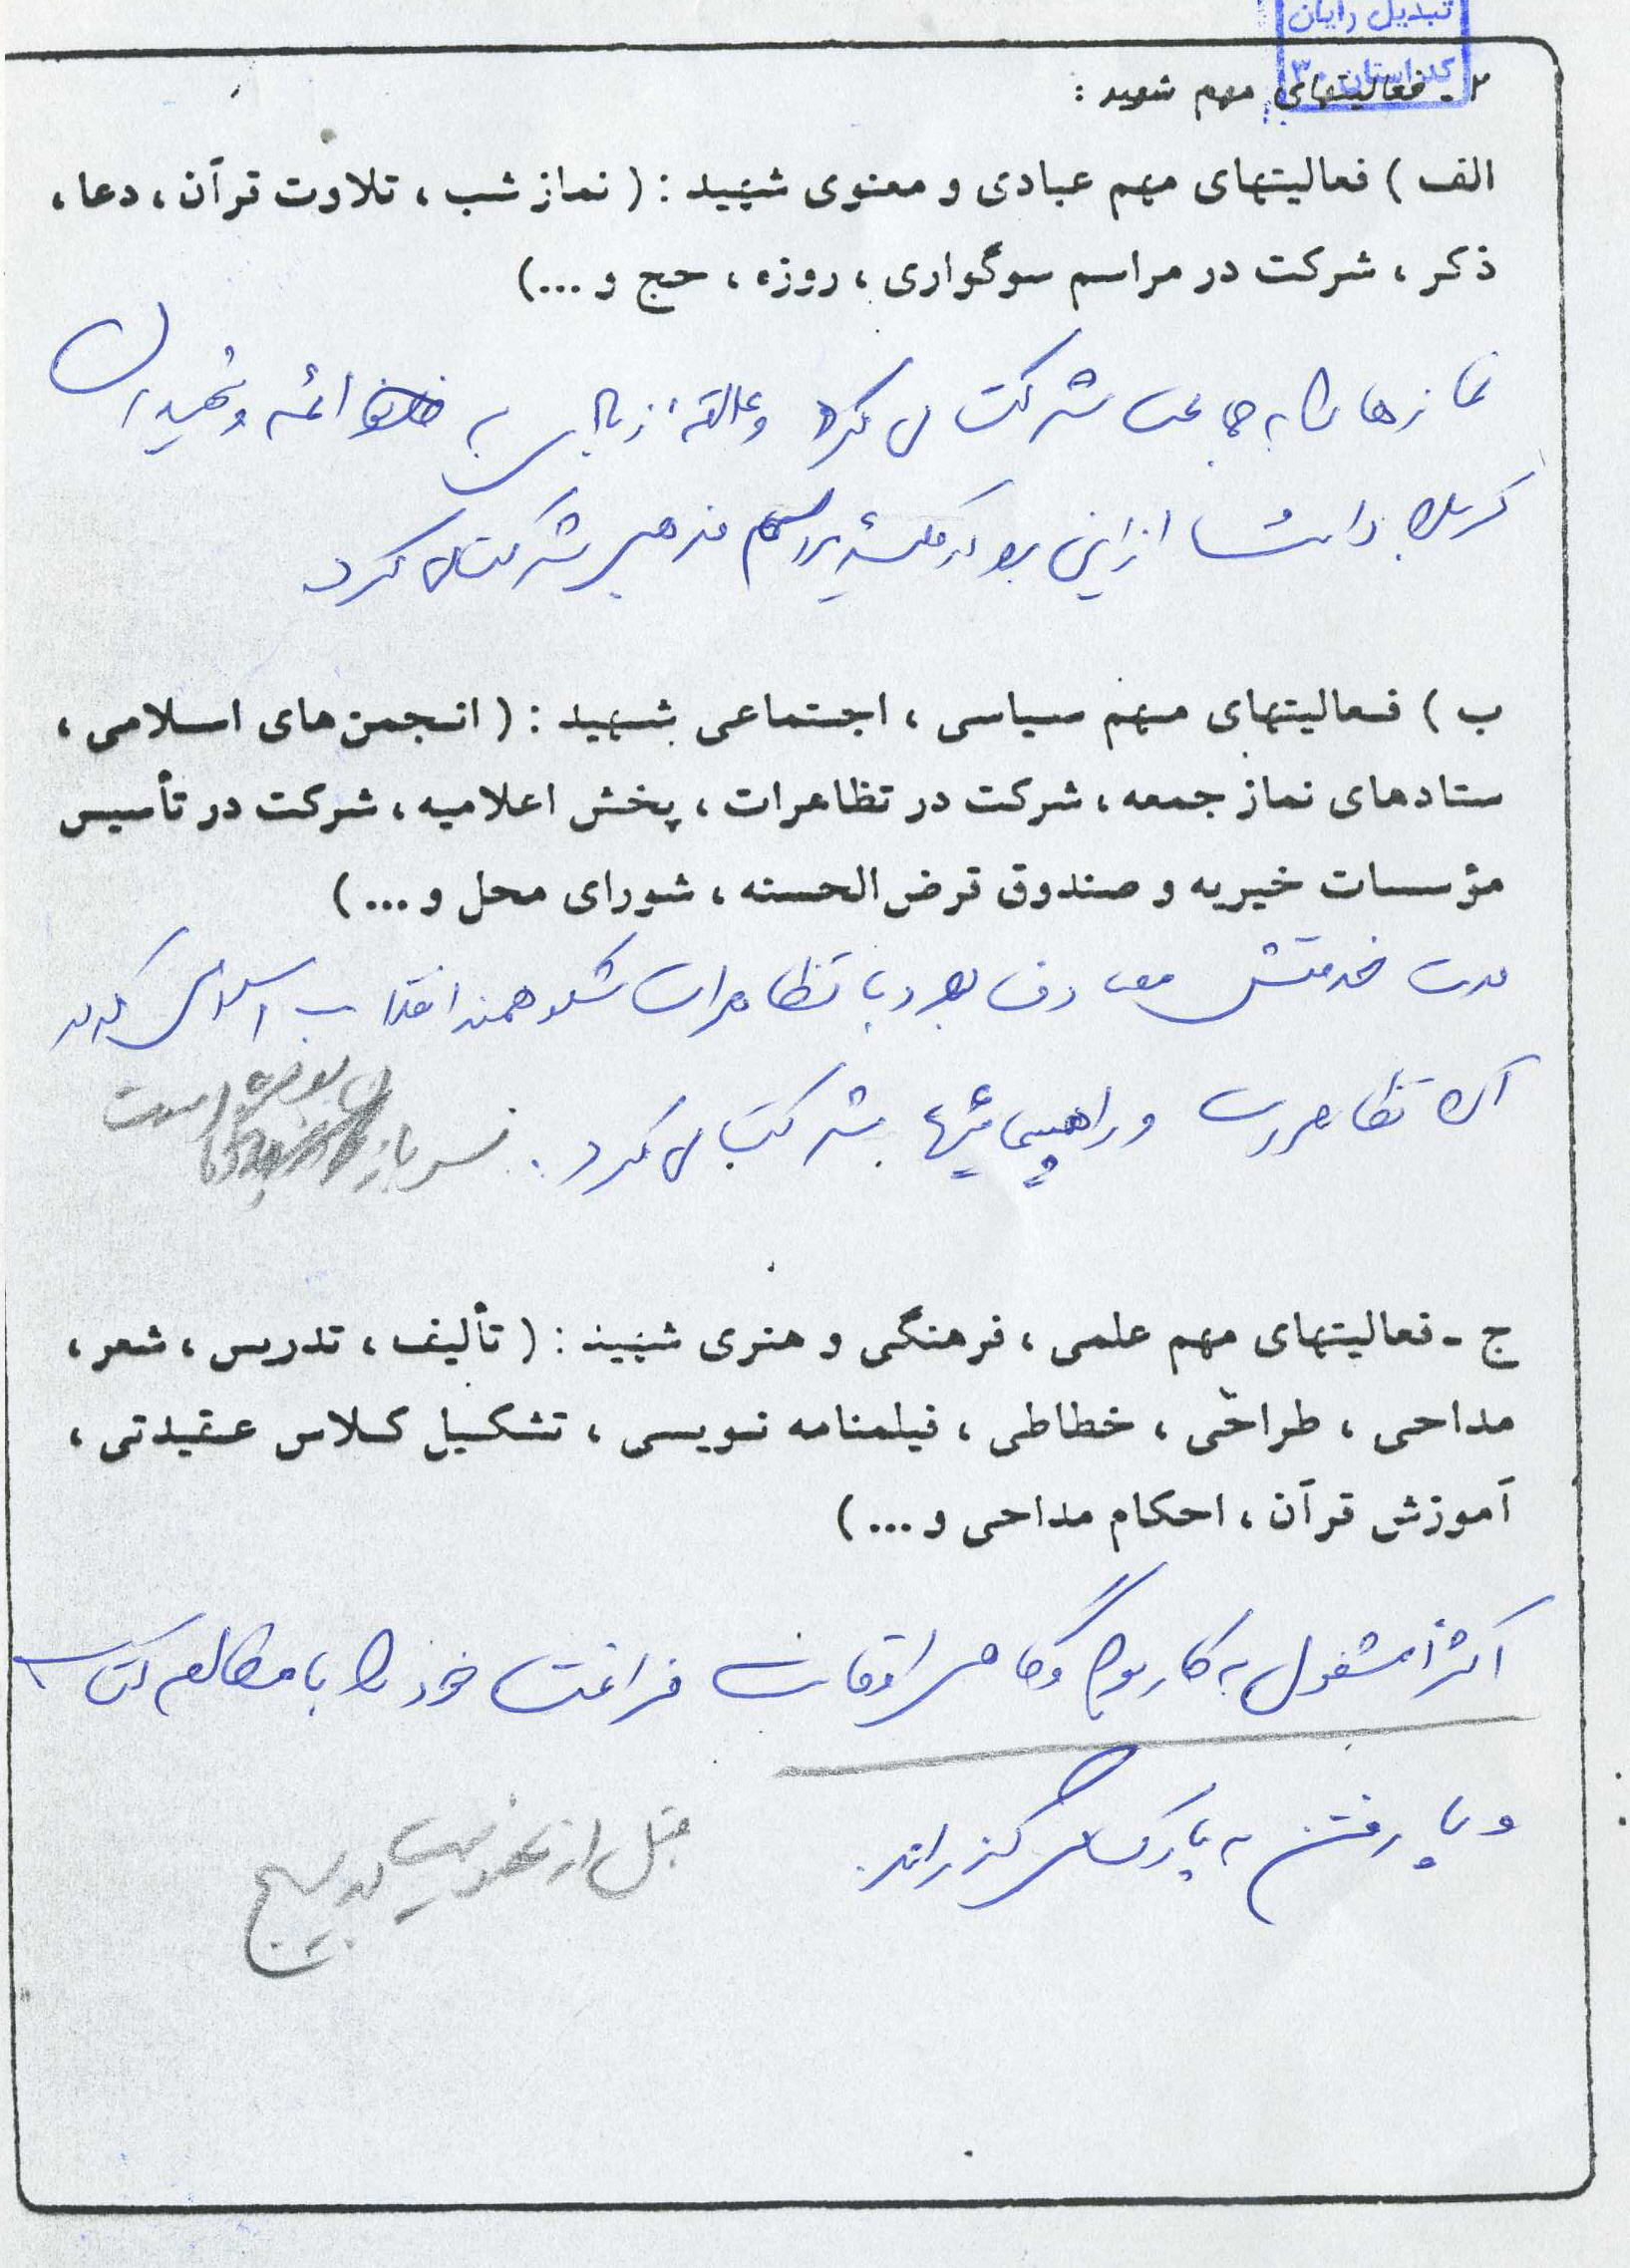 تبدیل رایان
کد استان ۳۰
۲ - فعالیتهای مهم شهید :
الف ) فعالیتهای مهم عبادی و معنوی شهید : ( نماز شب ، تلاوت قرآن ، دعا ،
ذکر ، شرکت در مراسم سوگواری ، روزه ، حج و ...)
نمازها را به جماعت شرکت می کرد و علاقه زیادی به ائمه و شهیدان
کربلا داشت از این رو در مراسم مذهبی شرکت می کرد
ب ) فعالیتهای مهم سیاسی ، اجتماعی شهید : ( انجمن های اسلامی ،
ستادهای نماز جمعه ، شرکت در تظاهرات ، پخش اعلامیه ، شرکت در تأسیس
مؤسسات خیریه و صندوق قرض الحسنه ، شورای محل و ... )
مدت خدمتش مصادف بود با تظاهرات شکوهمند انقلاب اسلامی که در
آن تظاهرات و راهپیمائیها شرکت می کرد . سرباز بوده است
ج - فعالیتهای مهم علمی ، فرهنگی و هنری شهید : ( تألیف ، تدریس ، شعر ،
مداحی ، طراحی ، خطاطی ، فیلمنامه نویسی ، تشکیل کلاس عقیدتی ،
آموزش قرآن ، احکام مداحی و ... )
اکثراً مشغول به کار بود و گاهی اوقات فراغت خود را با مطالعه کتاب
و یا رفتن به پارک می گذراند.
قبل از عضویت در بسیج